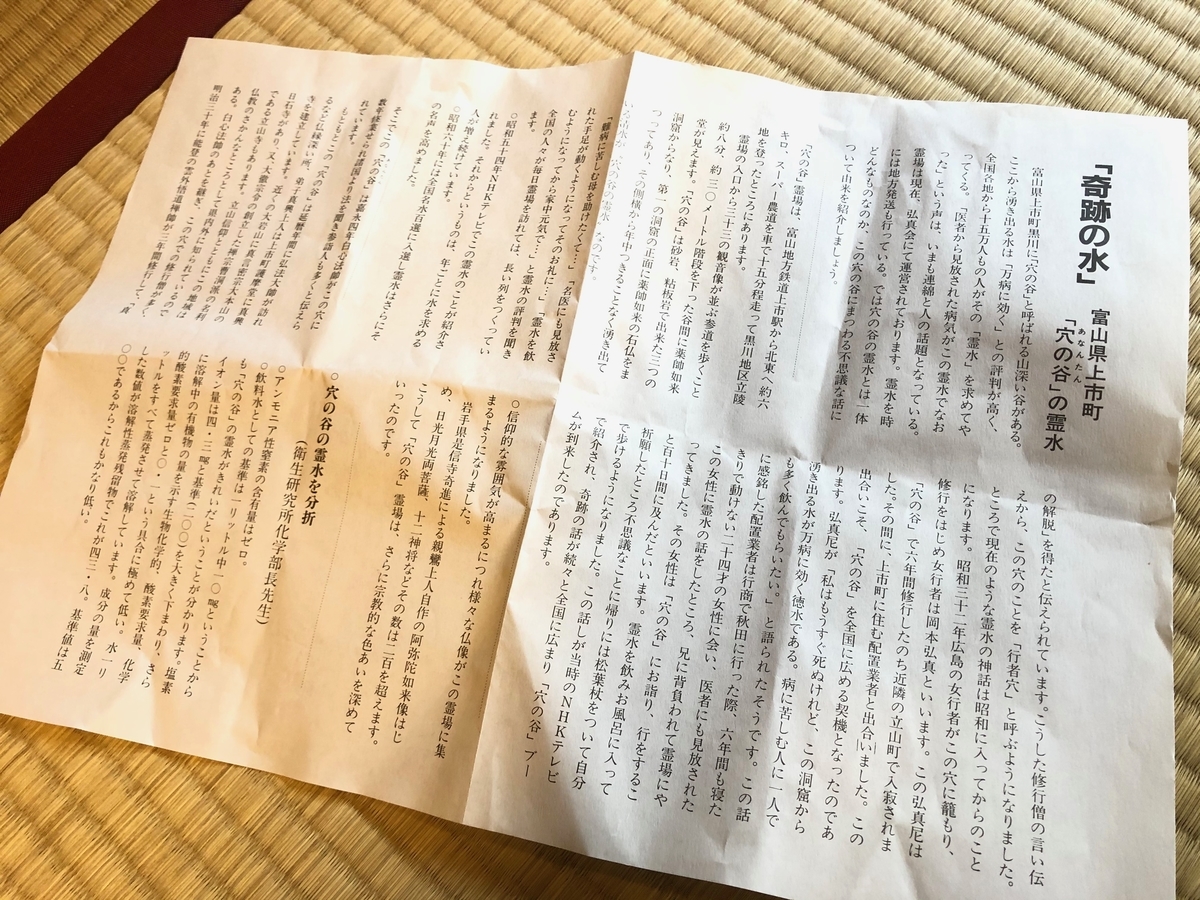 「奇跡の水」
富山県上市町
「穴の谷」の霊水
あなんたん
富山県上市町黒川に「穴の谷」と呼ばれる山深い谷がある。
ここから湧き出る水は「万病に効く」との評判が高く、
全国各地から十五万人もの人がその「霊水」を求めてや
ってくる。「医者から見放された病気がこの霊水でなお
った」という声は、いまも連綿と人の話題となっている。
霊場は現在、弘真会にて運営されております。霊水を時
には地方発送も行っている。では穴の谷の霊水とは一体
どんなものなのか、この穴の谷にまつわる不思議な話に
ついて由来を紹介しましょう。
「穴の谷」霊場は、富山地方鉄道上市駅から北東へ約六
キロ、スーパー農道を車で十五分程走って黒川地区立陵
地を登ったところにあります。
霊場の入口から三十三の観音像が並ぶ参道を歩くこと
約八分、約三〇メートル階段を下った谷間に薬師如来
堂が見えます。「穴の谷」は砂岩、粘板岩で出来た三つの
洞窟からなり、第一の洞窟の正面に薬師如来の石仏をま
つってあり、その側横から年中つきることなく湧き出て
いる湧水が「穴の谷の霊水」なのです。
「難病に苦しむ母を助けたくて…」「名医にも見放さ
れた手足が動くようになってそのお礼に…」「霊水を飲
むようになってから家中元気で…」と霊水の評判を聞き
全国の人々が毎日霊場を訪れては、長い列をつくってい
ます。
○昭和五十四年NHKテレビでこの霊水のことが紹介さ
れました。それからというものは、年ごとに水を求める
人が増え続けています。
○昭和六十年には全国名水百選に入選し霊水はさらにそ
の名声を高めました。
そこでこの「穴の谷」
れています。
もともとこの「穴の谷」は延暦年間に弘法大師が訪れ
るなど仏縁深い所
寺を建立しています。
日石寺があり、又、大徹宗令の創立した禅宗大本山の
である立山寺もあり、
仏教のさかんなところとして県内外に知られている
ある。白心法師のあとを継ぎ、この穴での修行
明治三十年に能登の雲外悟道禅師が三年間修行して、真
の解脱」を得たと伝えられています。こうした修行僧の言い伝
えから、この穴のことを「行者穴」と呼ぶようになりました。
ところで現在のような霊水の神話は昭和に入ってからのこと
になります。昭和三十二年広島の女行者がこの穴に籠もり、
修行をはじめ女行者は岡本弘真といいます。この弘真尼は
「穴の谷」で六年間修行したのち近隣の立山町で入寂されま
した。その間に、上市町に住む配置業者と出合いました。この
出合いこそ、「穴の谷」を全国に広める契機となったのであ
ります。弘真尼が「私はもうすぐ死ぬけれど、この洞窟から
湧き出る水が万病に効く徳水である。病に苦しむ人に一人で
も多く飲んでもらいたい。」と語られたそうです。この話
に感銘した配置業者は行商で秋田に行った際、六年間も寝た
きりで動けない二十四才の女性に会い、医者にも見放された
この女性に霊水の話をしたところ、兄に背負われて霊場にや
ってきました。その女性は「穴の谷」にお詣り、行をするこ
と百十日間に及んだといいます。霊水を飲みお風呂に入って
祈願したところ不思議なことに帰りには松葉杖をついて自分
で歩けるようになりました。この話しが当時のNHKテレビ
で紹介され、奇跡の話が続々と全国に広まり「穴の谷」ブー
ムが到来したのであります。
○信仰的な雰囲気が高まるにつれ様々な仏像がこの霊場に集
まるようになりました。
岩手県是信寺奇進による親鸞上人自作の阿弥陀如来像はじ
め、日光月光両菩薩、十二神将などその数は二百を超えます。
こうして「穴の谷」霊場は、さらに宗教的な色あいを深めて
いったのです。
○穴の谷の霊水を分折
（衛生研究所化学部長先生）
○アンモニア性窒素の含有量はゼロ。
○飲料水としての基準は一リットル中一〇㎎ということから
も「穴の谷」の霊水がきれいだということが分かります。塩素
イオン量は四・三㎎と基準（二〇〇）を大きく下まわり、さら
に溶解中の有機物の量を示す生物化学的、酸素要求量、化学
的酸素要求量ゼロと〇・一という具合に極めて低い。水一リ
ットルをすべて蒸発させて溶解しています。成分の量を測定
した数値が溶解性蒸発残留物でこれが四三・八。基準値は五
〇〇であるからこれもかなり低い。